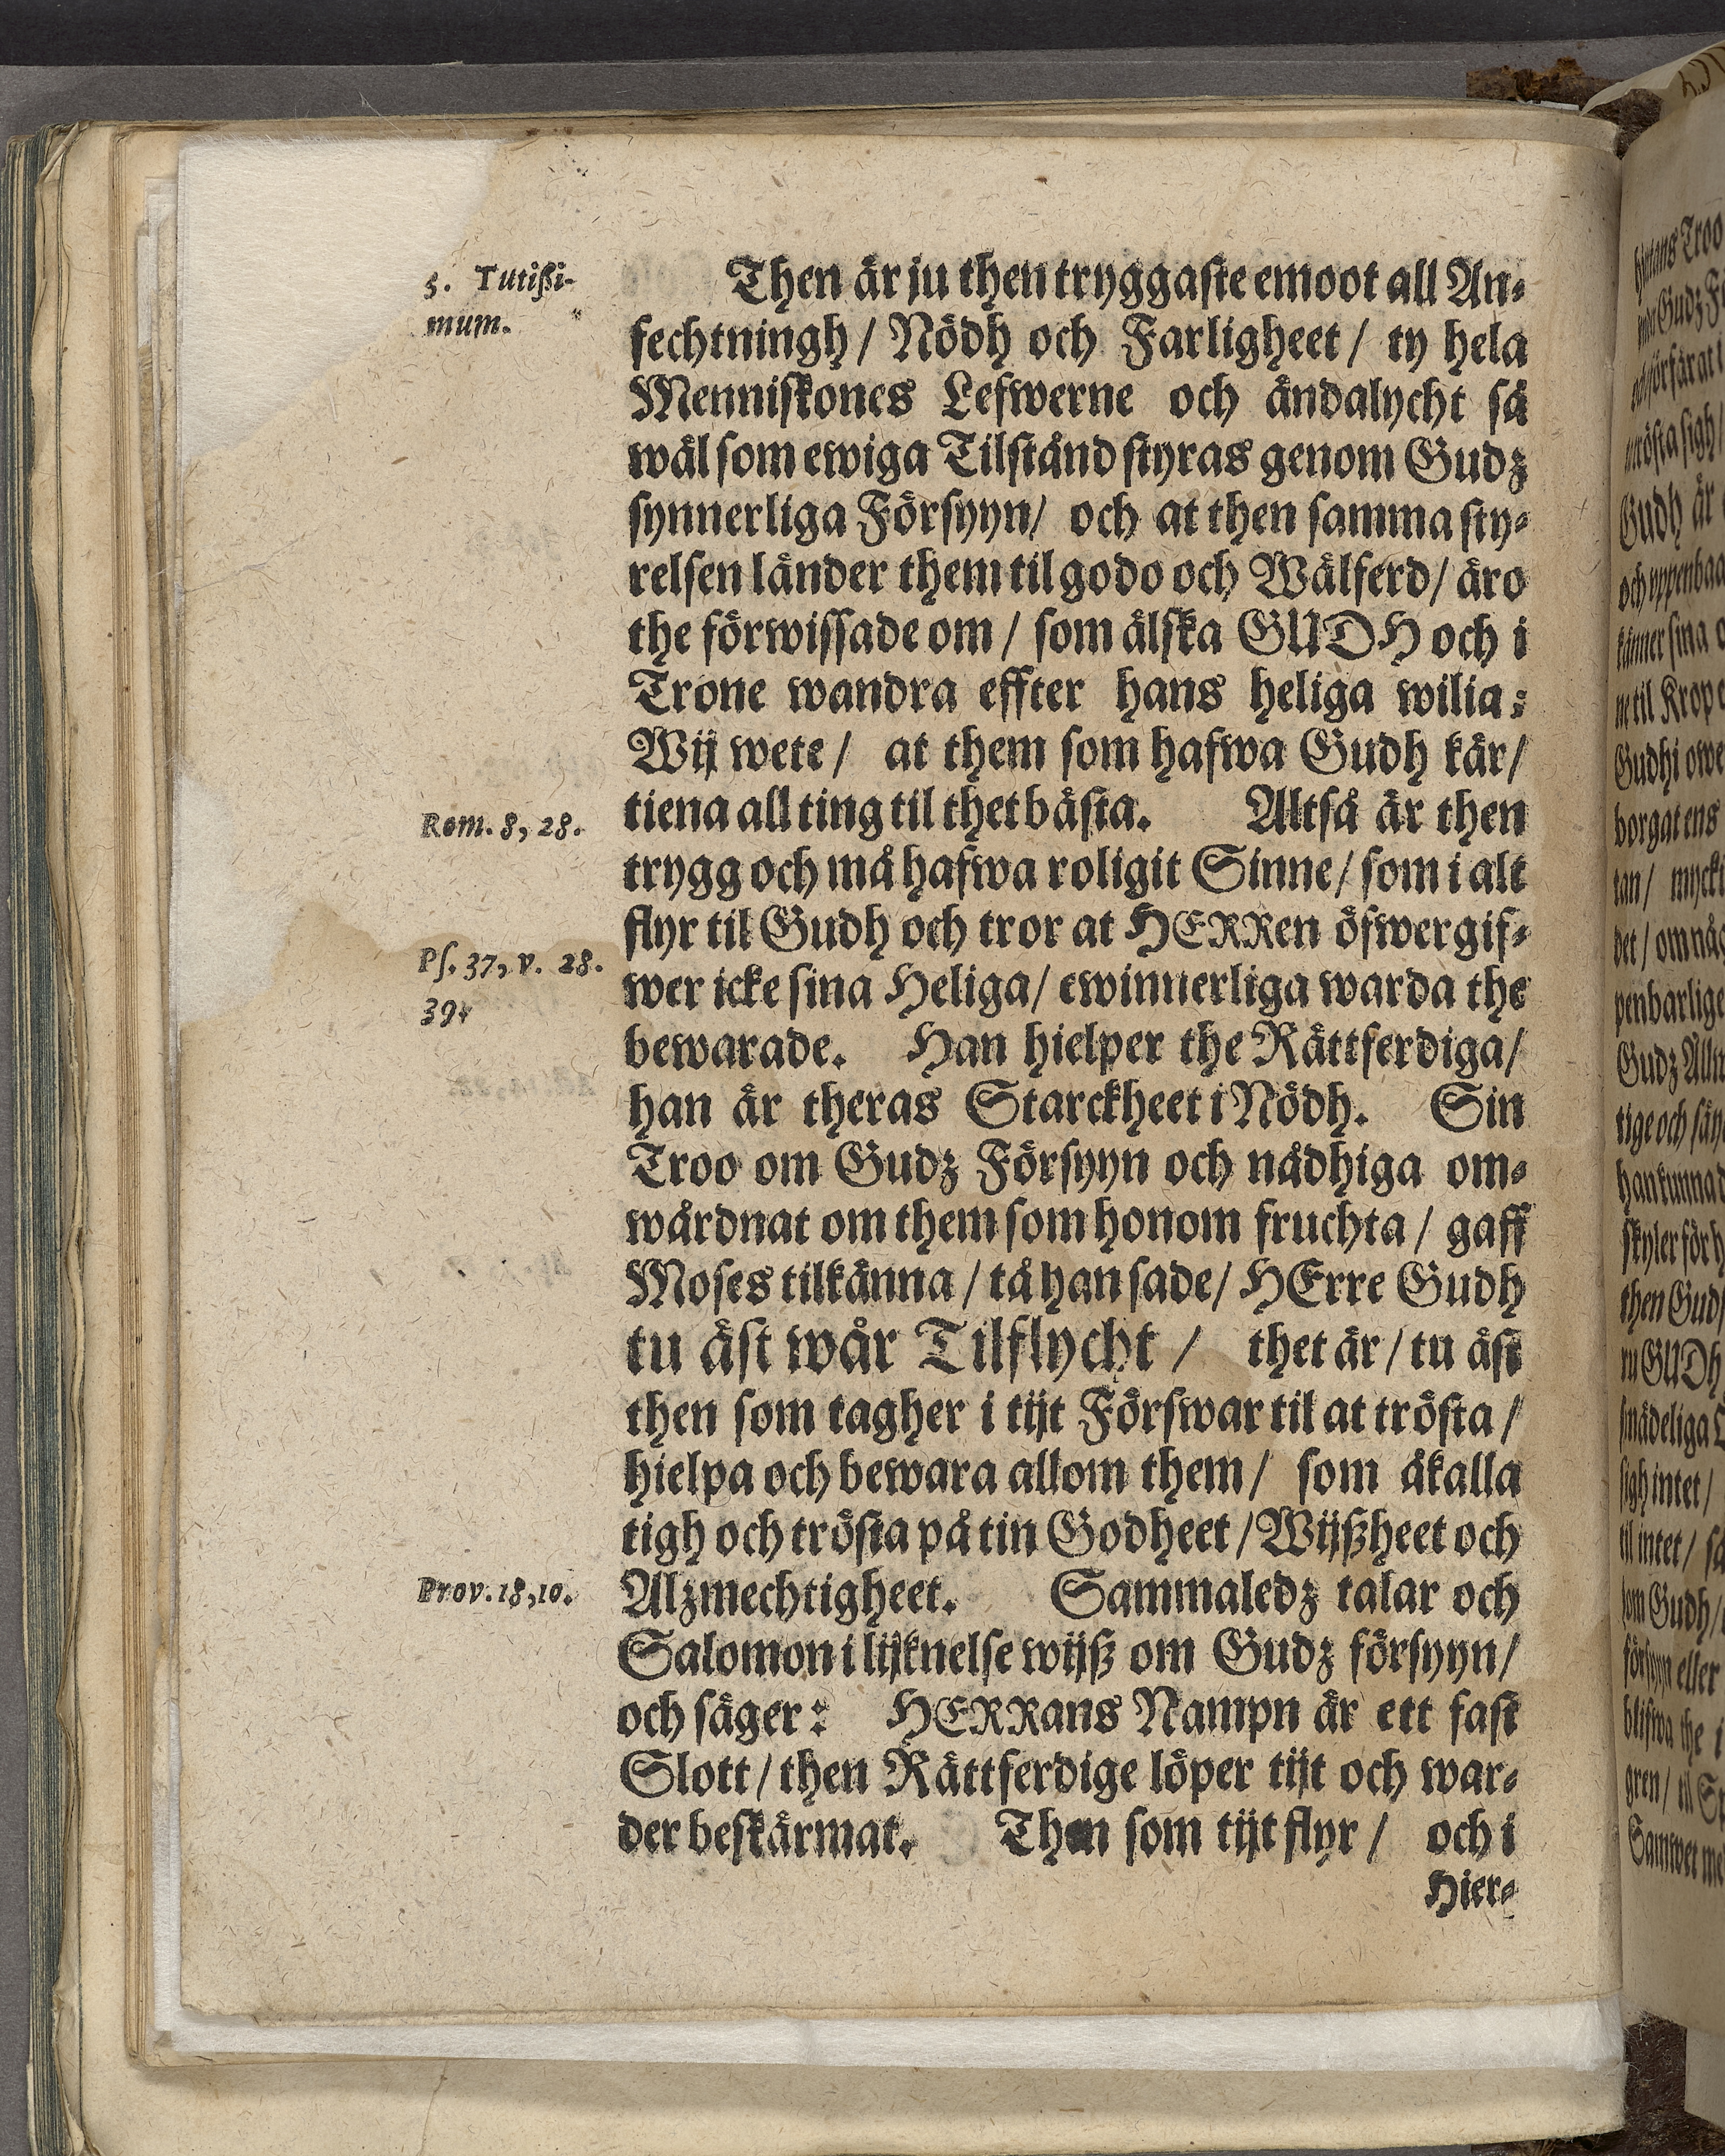 5. Tutißi-
mum.
Then är ju then tryggaste emoot all An-
fechtningh / Nödh och Farligheet / ty hela
Menniskones Lefwerne och ändalycht så
wäl som ewiga Tilstånd styras genom Gudz
synnerliga Försyyn / och at then samma sty-
relsen länder them til godo och Wälferd / äro
the förwissade om / som älska GUDH och i
Trone wandra effter hans heliga wilia:
Wij wete / at them som hafwa Gudh kär /
Rom. 8, 28.
tiena all ting til thet bästa. Altså är then
trygg och må hafwa roligit Sinne / som i alt
flyr til Gudh och tror at HERRen öfwergif-
Ps. 37, v. 28.
39.
wer icke sina Heliga / ewinnerliga warda the
bewarade. Han hielper the Rättferdiga /
han är theras Starckheet i Nödh. Sin
Troo om Gudz Försyyn och nådhiga om-
wårdnat om them som honom fruchta / gaff
Moses tilkänna / tå han sade / HErre Gudh
tu äst wår Tilflycht / thet är / tu äst
then som tagher i tijt Förswar til at trösta /
hielpa och bewara allom them / som åkalla
tigh och trösta på tin Godheet / Wijßheet och
Prov. 18, 10.
Alzmechtigheet. Sammaledz talar och
Salomon i lijknelse wijß om Gudz försyyn /
och säger: HERRans Nampn är ett fast
Slott / then Rättferdige löper tijt och war-
der beskärmat. Then som tijt flyr / och i
Hier-